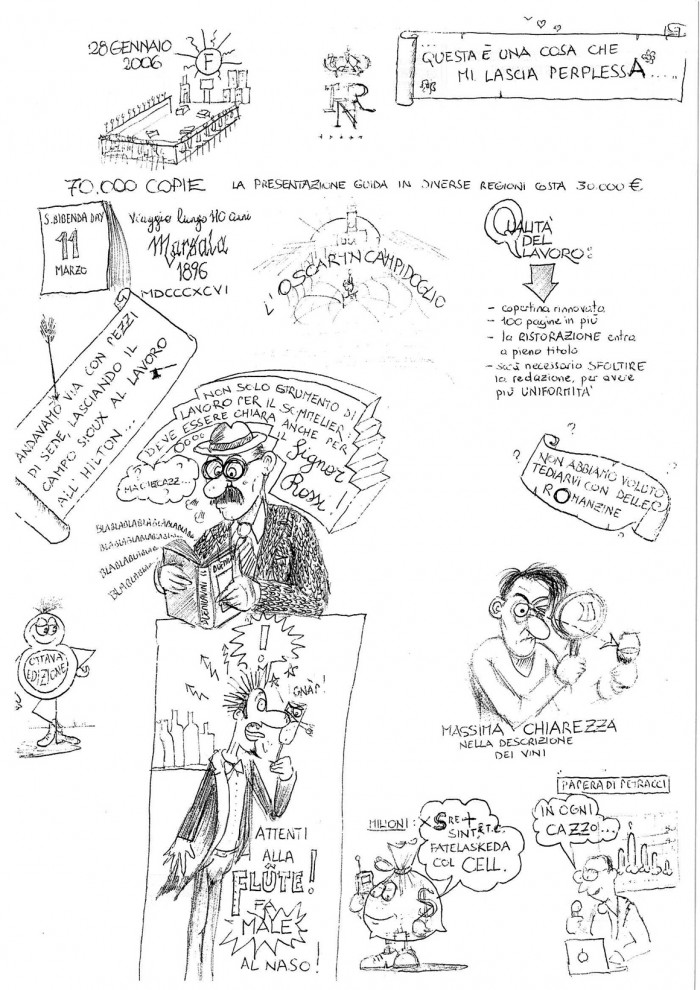 28 GENNAIO
2006
F
F
R
N
...QUESTA È UNA COSA CHE
MI LASCIA PERPLESSA....
70.000 COPIE LA PRESENTAZIONE GUIDA IN DIVERSE REGIONI COSTA 30.000 €
S. BIBENDA DAY
11
MARZO
Viaggio lungo 110 anni
Marsala
1896
MDCCCXCVI
L'OSCAR IN CAMPIDOGLIO
QUALITÀ
DEL
LAVORO:
- copertina rinnovata
- 100 pagine in più
- la RISTORAZIONE entra
a pieno titolo
- sarà necessario SFOLTIRE
la redazione, per avere
più UNIFORMITA'
ANDAVAMO VIA CON PEZZI
DI SEDE, LASCIANDO IL
CAMPO SIOUX AL LAVORO
ALL'HILTON...
NON SOLO STRUMENTO DI
LAVORO PER IL SOMMELIER:
DEVE ESSERE CHIARA ANCHE PER
IL Signor
Rossi!
OOOO
MA CHECAZZ...
BLABLABLABLABLABLABLABLA
BLABLABLABLABLA
BLABLABLABLA
BLABLABLA
DUEMILAVINI
?
?
?
NON ABBIAMO VOLUTO
TEDIARVI CON DELLE
ROMANZINE
OTTAVA
EDIZIONE
!
GNAP!
MASSIMA CHIAREZZA
NELLA DESCRIZIONE
DEI VINI
ATTENTI
ALLA
FLÛTE!
FA
MALE
AL NASO!
MILIONI: X SRE+
SINT.E.T.C.
FATELASKEDA
COL CELL.
$
PAPERA DI PETRACCI
IN OGNI
CAZZO...